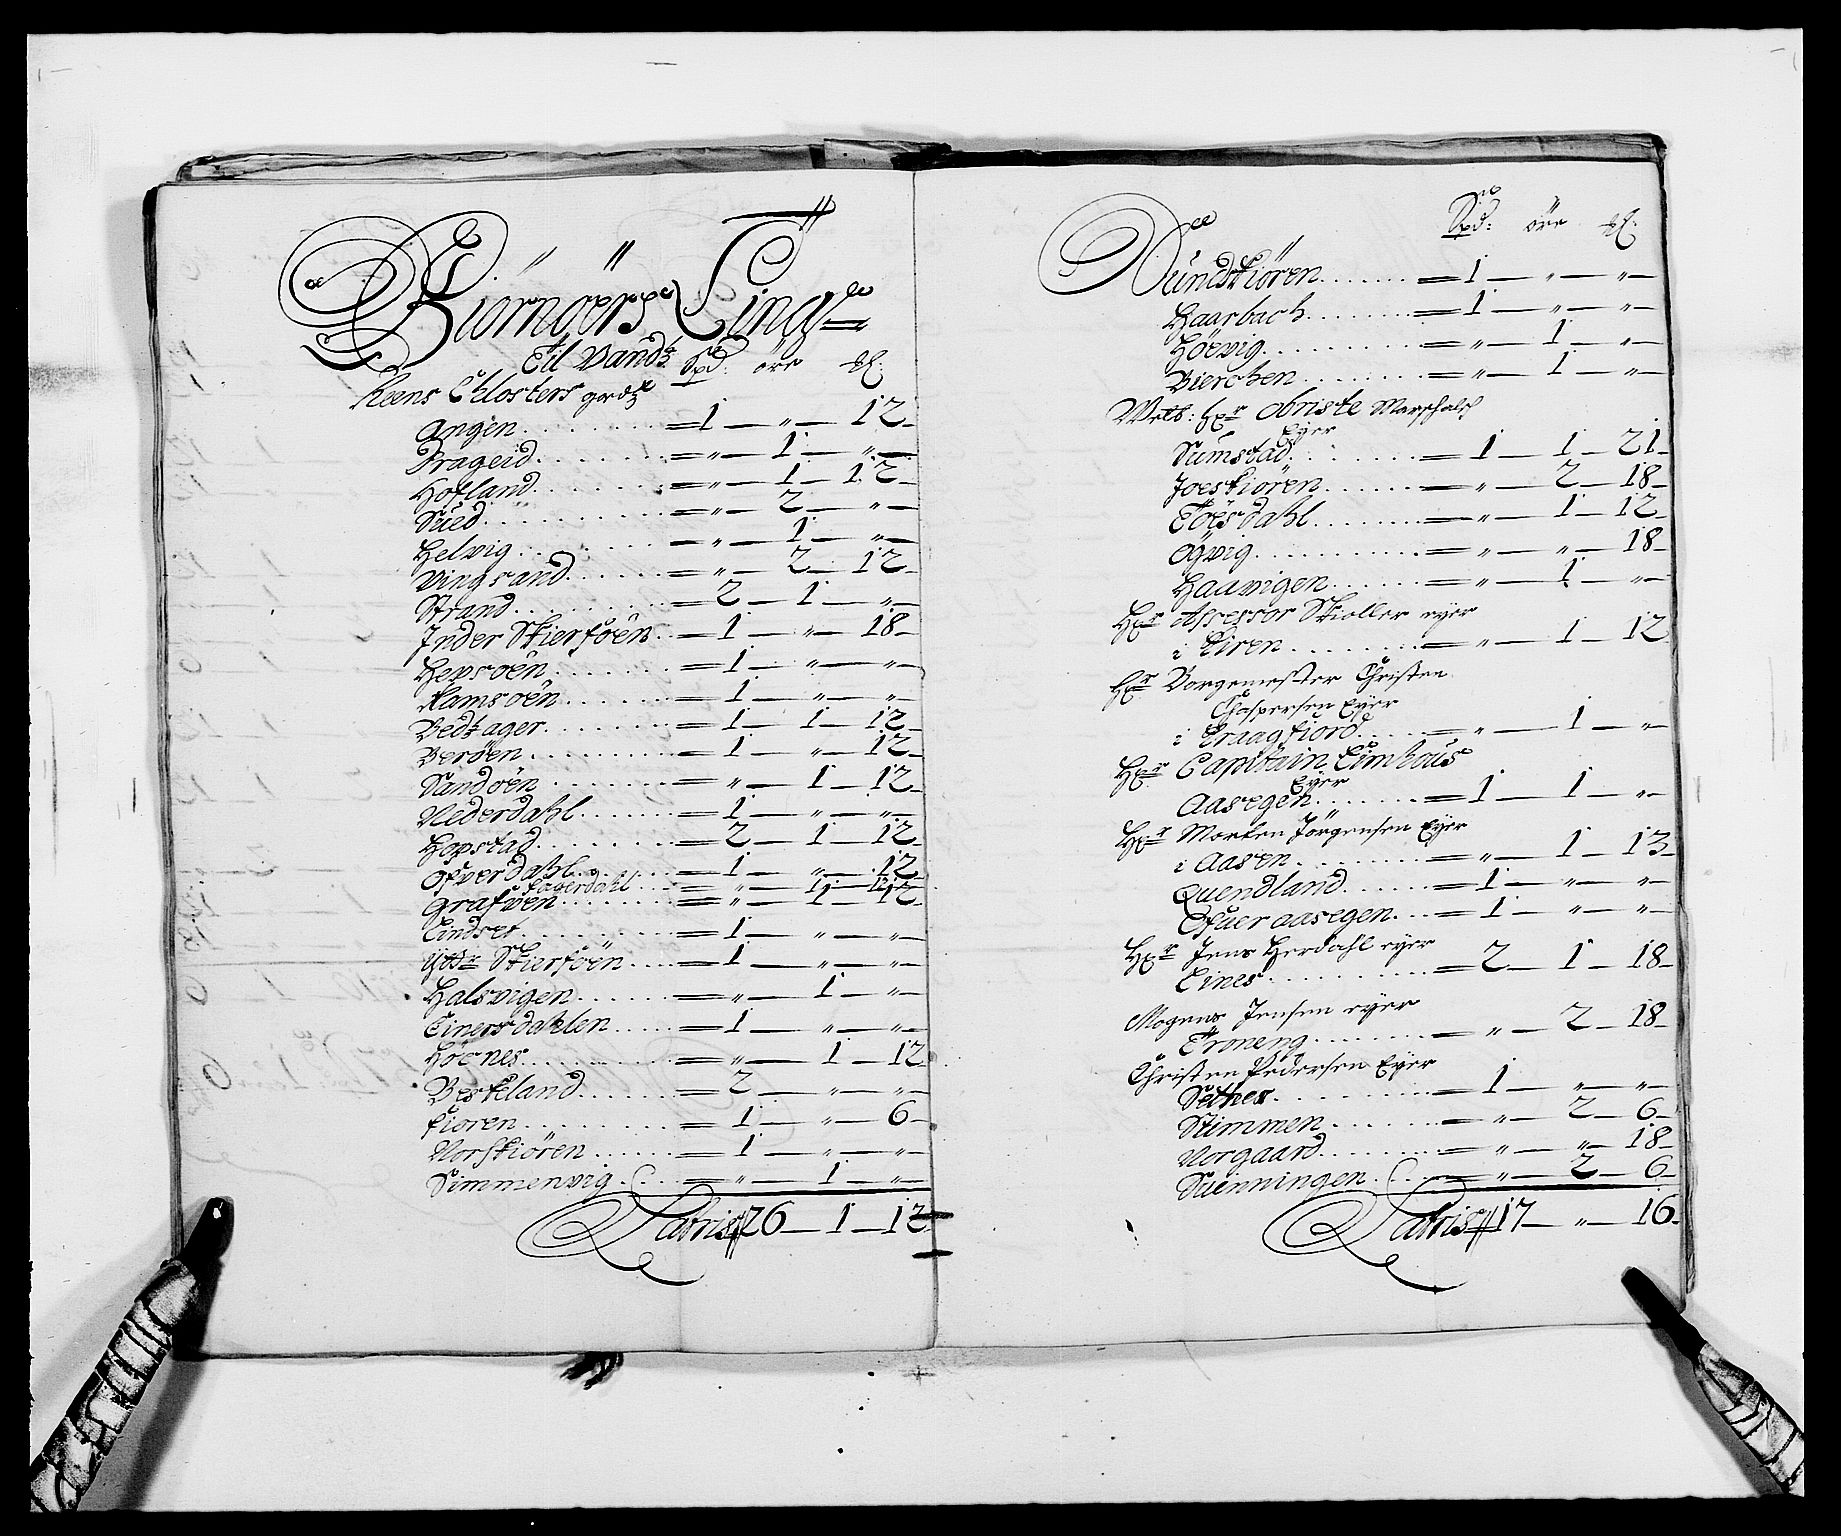 Biörnöers Ting
Til Vandz Spd: öre
Reens Closters godz
Angen . . . = 1 — " — 12
Drageid . . . = " — 1 — "
Hofland . . . = " — 1 — 12
Sued . . . = " — 2 — "
Helvig . . . = " — 1 — "
Vingsand . . . = " — 2 — 12
Strand . . . = 2 — 1 — "
Inder Skierföen . . = 1 — " — 18
Hepsöen . . . = 1 — " — "
Ramsöen . . . = 1 — " — "
Bedtzager . . . = 1 — 1 — 12
Beröen . . . = 1 — " — 12
Sandöen . . . = " — 1 — 12
Nederdahl . . . = 1 — " — "
Hopstad . . . = 2 — 1 — 12
Ofverdahl . . . = 1 — " — 12
Fagerdahl . . . = " — 1 — 12
Grafven . . . = " — 1 — 12
Lindset . . . = 1 — " — "
Ytdr Skierföen . . . = 1 — " — "
Halsvigen . . . = " — 1 — "
Einersdahlen . . . = 1 — " — "
Höenes . . . = " — 1 — 12
Beskeland . . . = 2 — " — "
Kioren . . . = 1 — " — 6
Norskiören . . . = 1 — " — "
Simmenvig . . . = " — 1 — "
Latris 26 — 1 — 12
Spd: öre
Sundskiören . . . = 1 — " — "
Haarbach . . . = 1 — " — "
Höevig . . . = " — 1 — "
Bierchen . . . = " — 1 — "
Welb: Hr Obriste Marschalch
Eyer
Sumstad . . . = 1 — 1 — 21
Joeskiören . . . = " — 2 — 18
Töesdahl . . . = " — 1 — 12
Ögvig . . . = " — " — 18
Haavigen . . . = " — 1 — "
Hr Assessor Skioller eyer
i Eiren . . . = " — 1 — 12
Hr Borgemester Christen
Chaspersen Eyer
i Traagfiord . . . = " — 1 — "
Hr Capitain Limhous
Eyer
Aasegen . . . = 1 — 1 — "
Hr Morten Jörgensen Eyer
i Aasen . . . = " — 1 — 13
Quendland . . . = 1 — " — "
Ofueraasegen . . . = 1 — " — "
Hr Jens Herdahl eyer
Eines . . . = 2 — 1 — 18
Mogens Jensen eyer
Troneng . . . = " — 2 — 18
Christen Pedersen Eyer
Setnes . . . = 1 — " — "
Stimmen . . . = " — 2 — 6
Norgaard . . . = " — " — 18
Suenningen . . . = " — 2 — 6
Latris 17 — " — 16